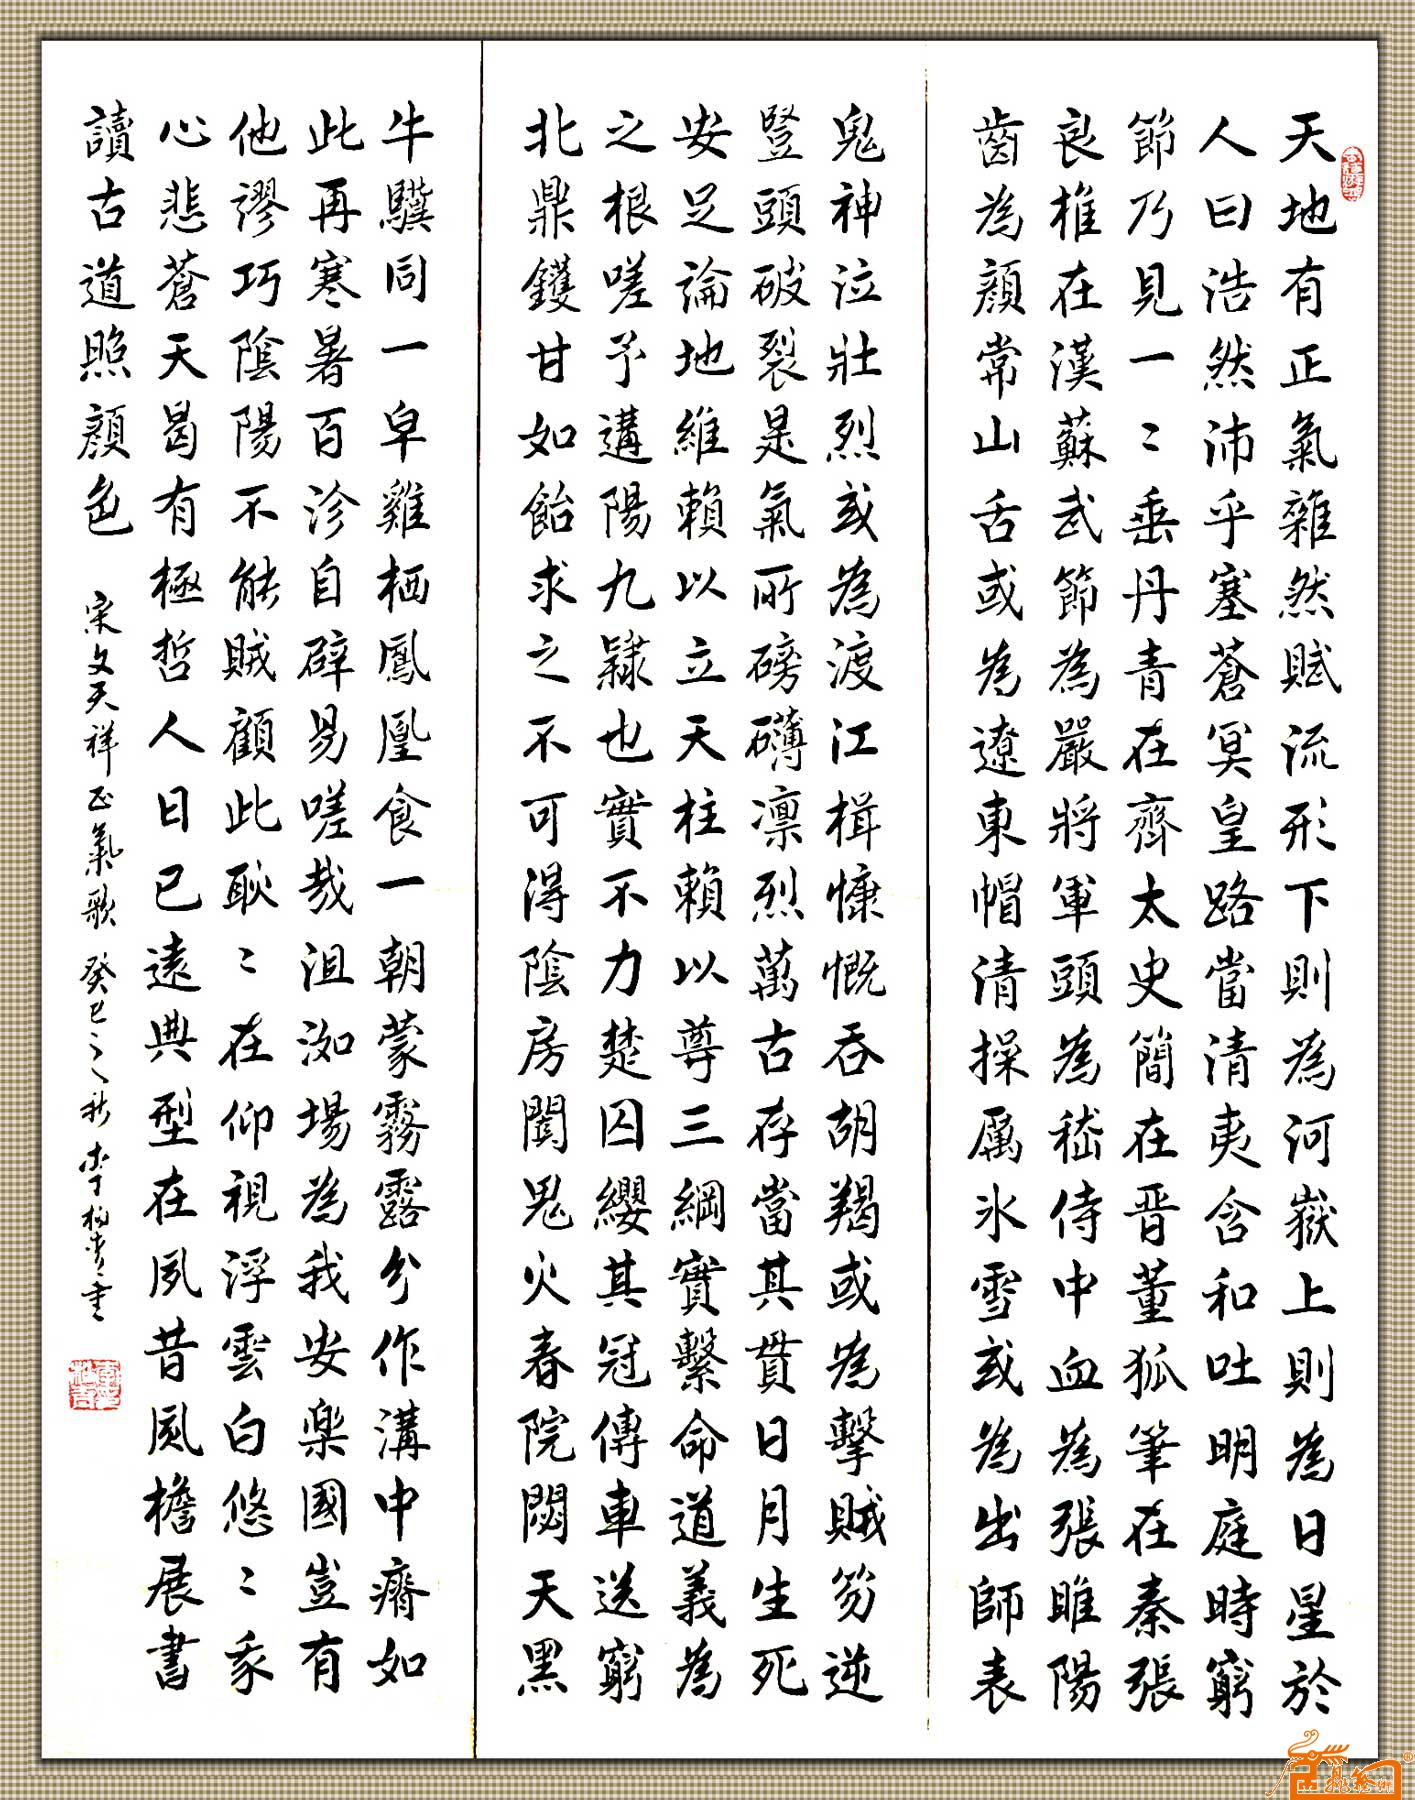 天地有正氣雜然賦流形下則為河嶽上則為日星於
人曰浩然沛乎塞蒼冥皇路當清夷含和吐明庭時窮
節乃見一〻垂丹青在齊太史簡在晋董狐筆在秦張
良椎在漢蘇武節為嚴將軍頭為嵇侍中血為張睢陽
齒為顏常山舌或為遼東帽清操厲冰雪或為出師表
鬼神泣壯烈或為渡江楫慷慨吞胡羯或為擊賊笏逆
豎頭破裂是氣所磅礴凛烈萬古存當其貫日月生死
安足論地維賴以立天柱賴以尊三綱實繫命道義為
之根嗟予遘陽九隸也實不力楚囚纓其冠傳車送窮
北鼎鑊甘如飴求之不可得陰房闃鬼火春院閟天黑
牛驥同一皁雞栖鳳凰食一朝蒙霧露分作溝中瘠如
此再寒暑百沴自辟易嗟哉沮洳場為我安樂國豈有
他謬巧陰陽不能賊顧此耿〻在仰視浮雲白悠〻我
心悲蒼天曷有極哲人日已遠典型在夙昔風檐展書
讀古道照顏色
宋文天祥正氣歌 癸巳之秋李柏青書